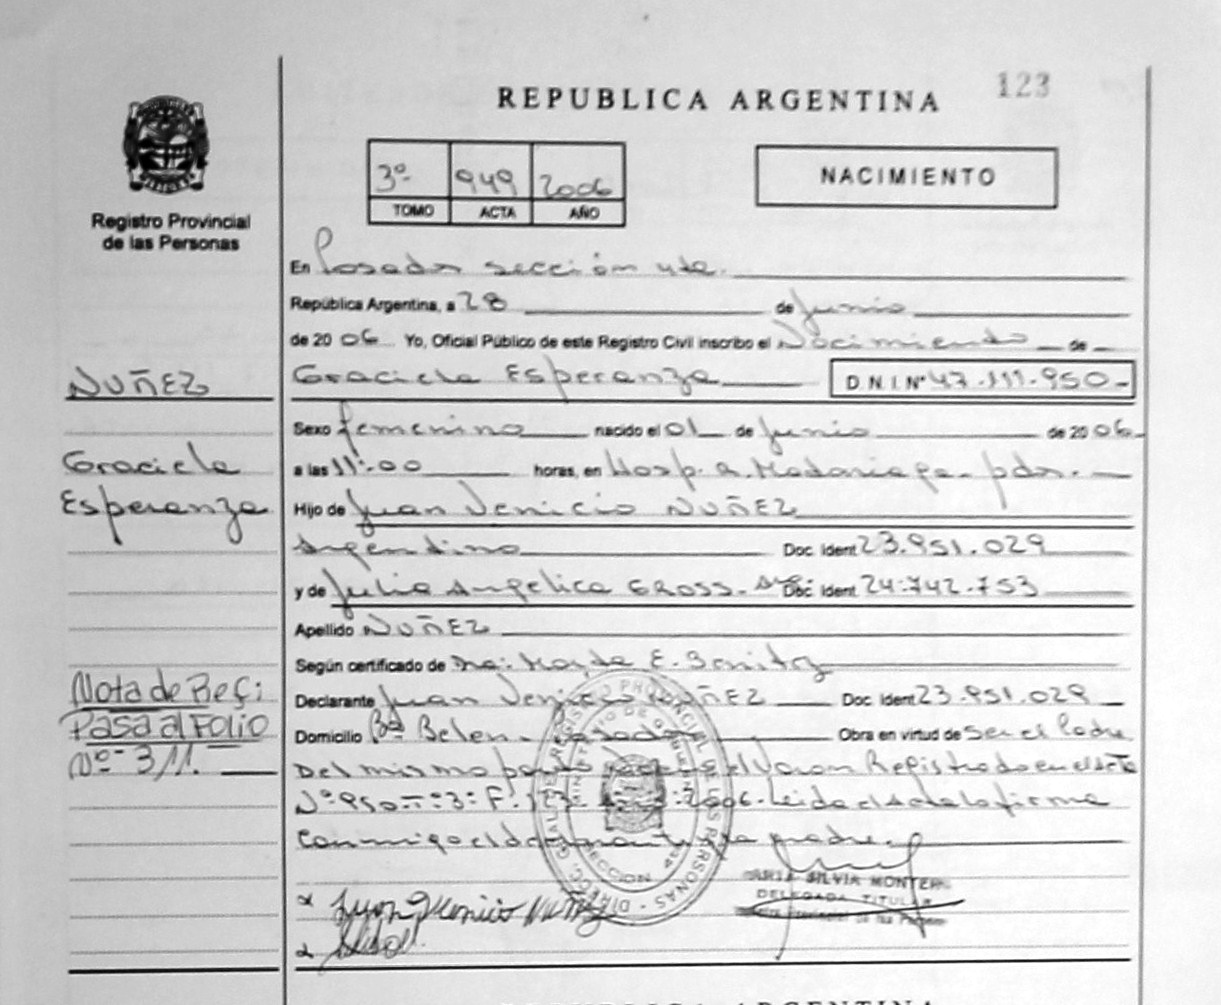 REPUBLICA ARGENTINA
123
3º 949 2006
TOMO ACTA AÑO
NACIMIENTO
Registro Provincial
de las Personas
En Posadas sección 4ta.
República Argentina, a 28 de Junio
de 2006 Yo, Oficial Público de este Registro Civil inscribo el Nacimiento de
NUÑEZ
Graciela Esperanza D N I Nº 47.111.950-
Sexo femenino nacido el 01 de Junio de 2006
Graciela
Esperanza
a las 11:00 horas, en Hosp. R. Madariaga - pdas.
Hijo de Juan Venicio NUÑEZ
Argentino Doc Ident 23.951.029
y de Julia Angelica GROSS. Arg. Doc Ident 24.742.753
Apellido NUÑEZ
Según certificado de E. Benitez
Nota de Ref:
Pasa al Folio
Nº 311.
Declarante Juan Venicio NUÑEZ Doc Ident 23.951.029
Domicilio Bº Belen - Posadas Obra en virtud de ser el Padre
Del mismo parto el Varon Registrado en el Acta
Nº 950 Tº 3º F. 123 2006. Leida el acta la firma
Conmigo el declarante y la madre.
DIRECC. GRAL. DEL REGISTRO PROVINCIAL DE LAS PERSONAS
MINISTERIO DE GOBIERNO
SECCION 4ta
Juan Venicio Nuñez
SILVIA MONTER
DELEGADA TITULAR
Registro Provincial de las Personas
REPUBLICA ARGENTINA